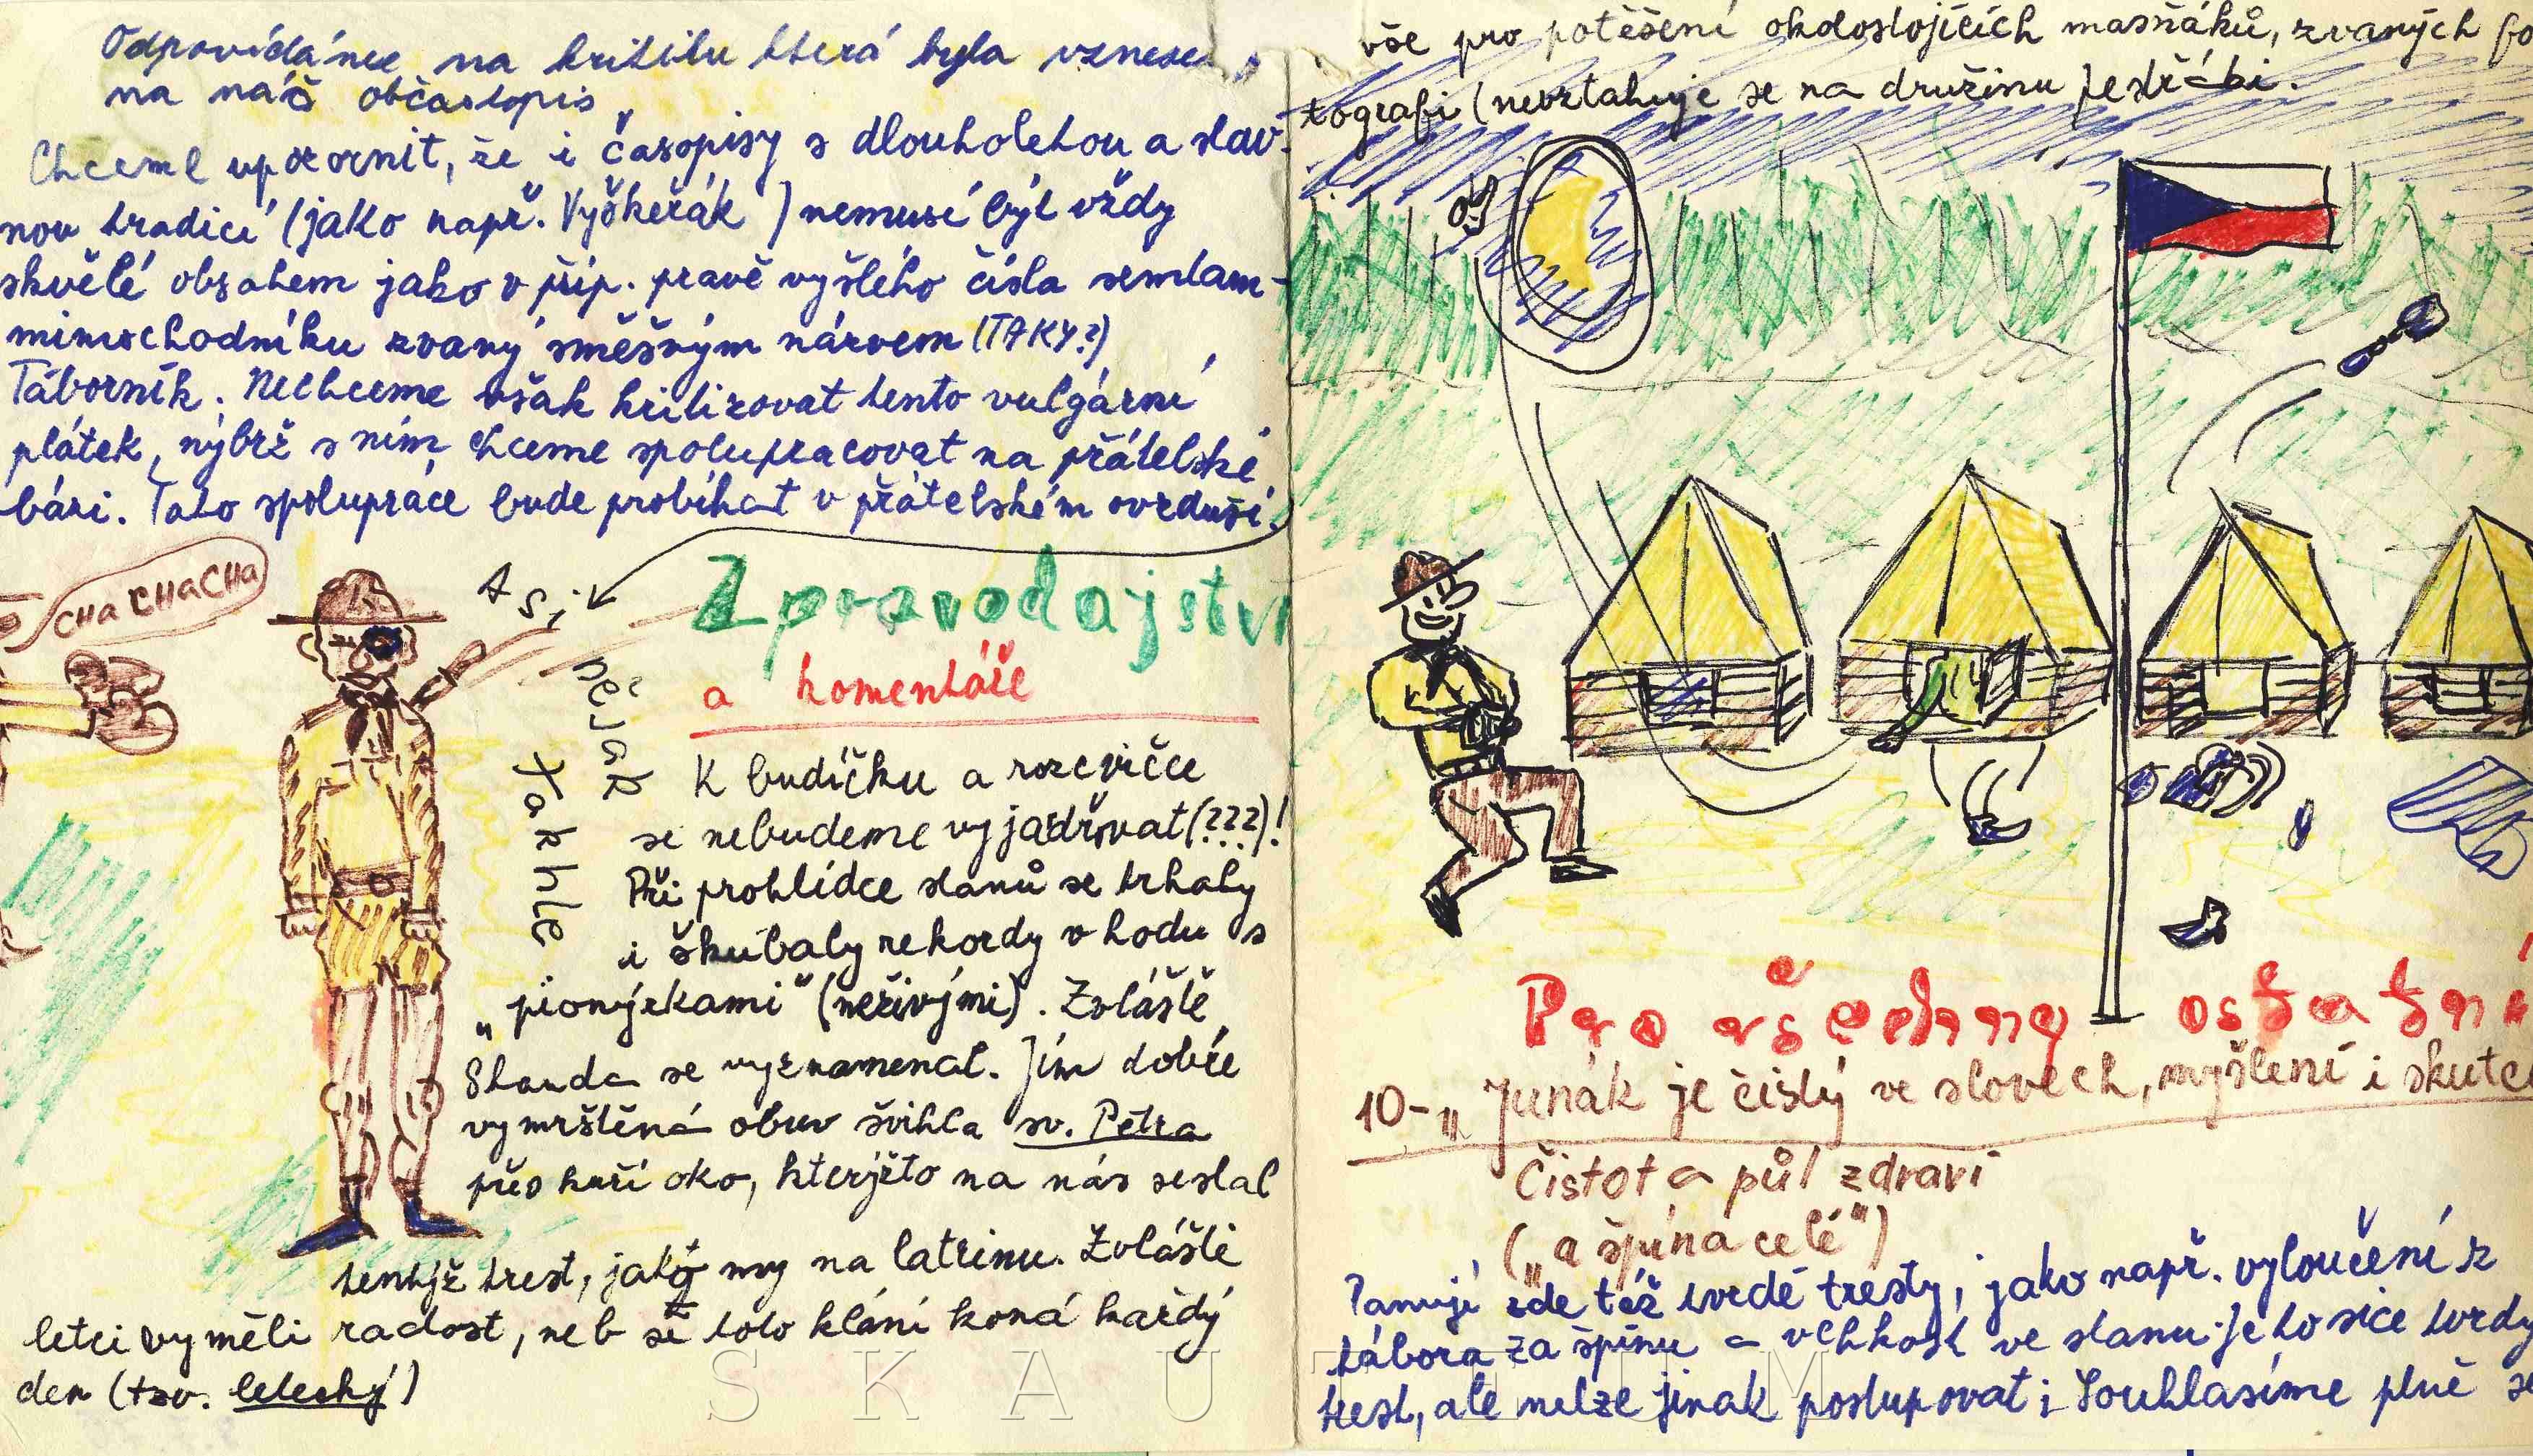 Odpovídánee na kritiku která byla vznesen
na náš občastopis
Chceme upozornit, že i časopisy s dlouholetou a slav-
nou tradicí (jako např. Vyškeřák) nemusí být vždy
skvělé obsahem jako v příp. pravě vyšlého čísla semtam-
mimochodníku zvaný směšným názvem (TAKY?)
Táborník. Nechceme však kritizovat tento vulgární
plátek, nýbrž s ním chceme spolupracovat na přátelské
bázi. Tato spolupráce bude probíhat v přátelském ovzduší.
CHA CHACHA
Asi
nějak
takhle
Zpravodajství
a komentáře
K budíčku a rozcvičce
se nebudeme vyjadřovat (???)!
Při prohlídce stanů se trhaly
i škubaly rekordy v hodu s
„pionýrkami" (neživými). Zvláště
Standa se vyznamenal. Jím dobře
vymrštěná obuv švihla sv. Petra
přes kuří oko, kterýžto na nás seslal
tentýž trest, jako my na latrinu. Zvláště
letci vyměli radost, neb se toto klání koná každý
den (tzv. letecký)
vše pro potěšení okolostojících masňáků, zvaných fo
tografi (nevztahuje se na družinu Jestřábi.
Pro všechny ostatní
10-„Junák je čistý ve slovech, myšlení i skutcí
Čistota půl zdraví
(„a špína celé")
Panují zde též tvrdé tresty, jako např. vyloučení z
tábora za špínu a vlhkost ve stanu. Je to sice tvrdý
trest, ale nelze jinak postupovat; Souhlasíme plně se
SKAUTEUM